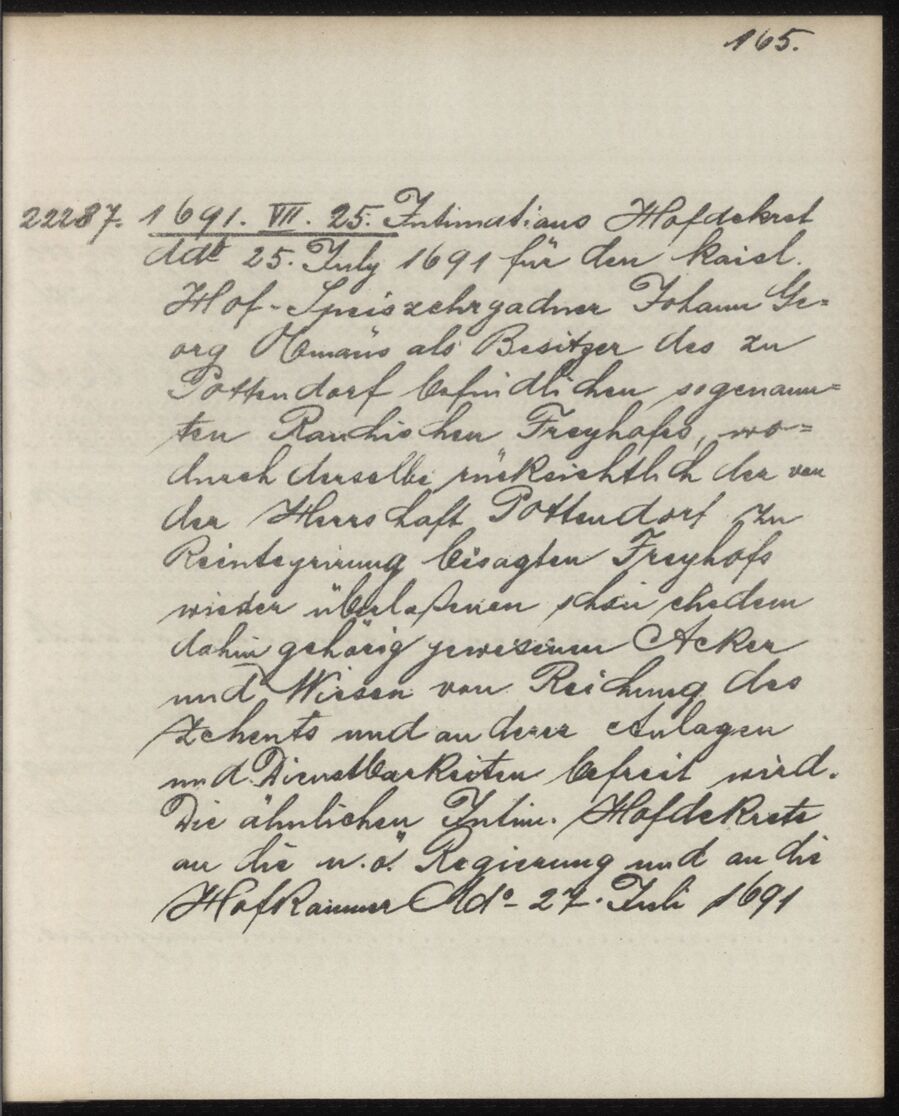 165.
22287. 1691. VII. 25. Intimations Hofdekret
ddo 25. July 1691 für den kaisl.
Hof-Speiszehrgadner Johann Ge=
org als Besitzer des zu
Pottendorf befindlichen sogenann=
ten Rauchischen Freyhofes, wo=
durch derselbe rücksichtlich der von
der Herrschaft Pottendorf zu
Reintegrirung besagten Freyhofs
wieder überlaßenen schon ehedem
dahin gehörig gewesenen Acker
und Wiesen von Reichung des
Zehents und anderer Anlagen
und Dienstbarkeiten befreit wird.
Die ähnlichen Intim. Hofdekrete
an die n.ö. Regierung und an die
Hofkammer ddo 27. Juli 1691